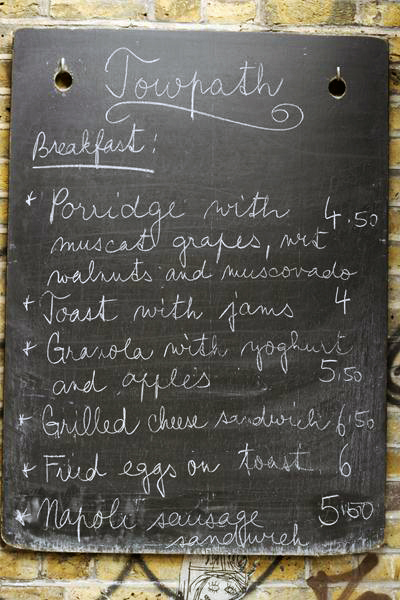 Towpath
Breakfast:
* Porridge with 4.50
muscat grapes, wet
walnuts and muscovado
* Toast with jams 4
* Granola with yoghurt
and apples 5.50
* Grilled cheese sandwich 6.50
* Fried eggs on toast 6
* Napoli sausage 5.50
sandwich